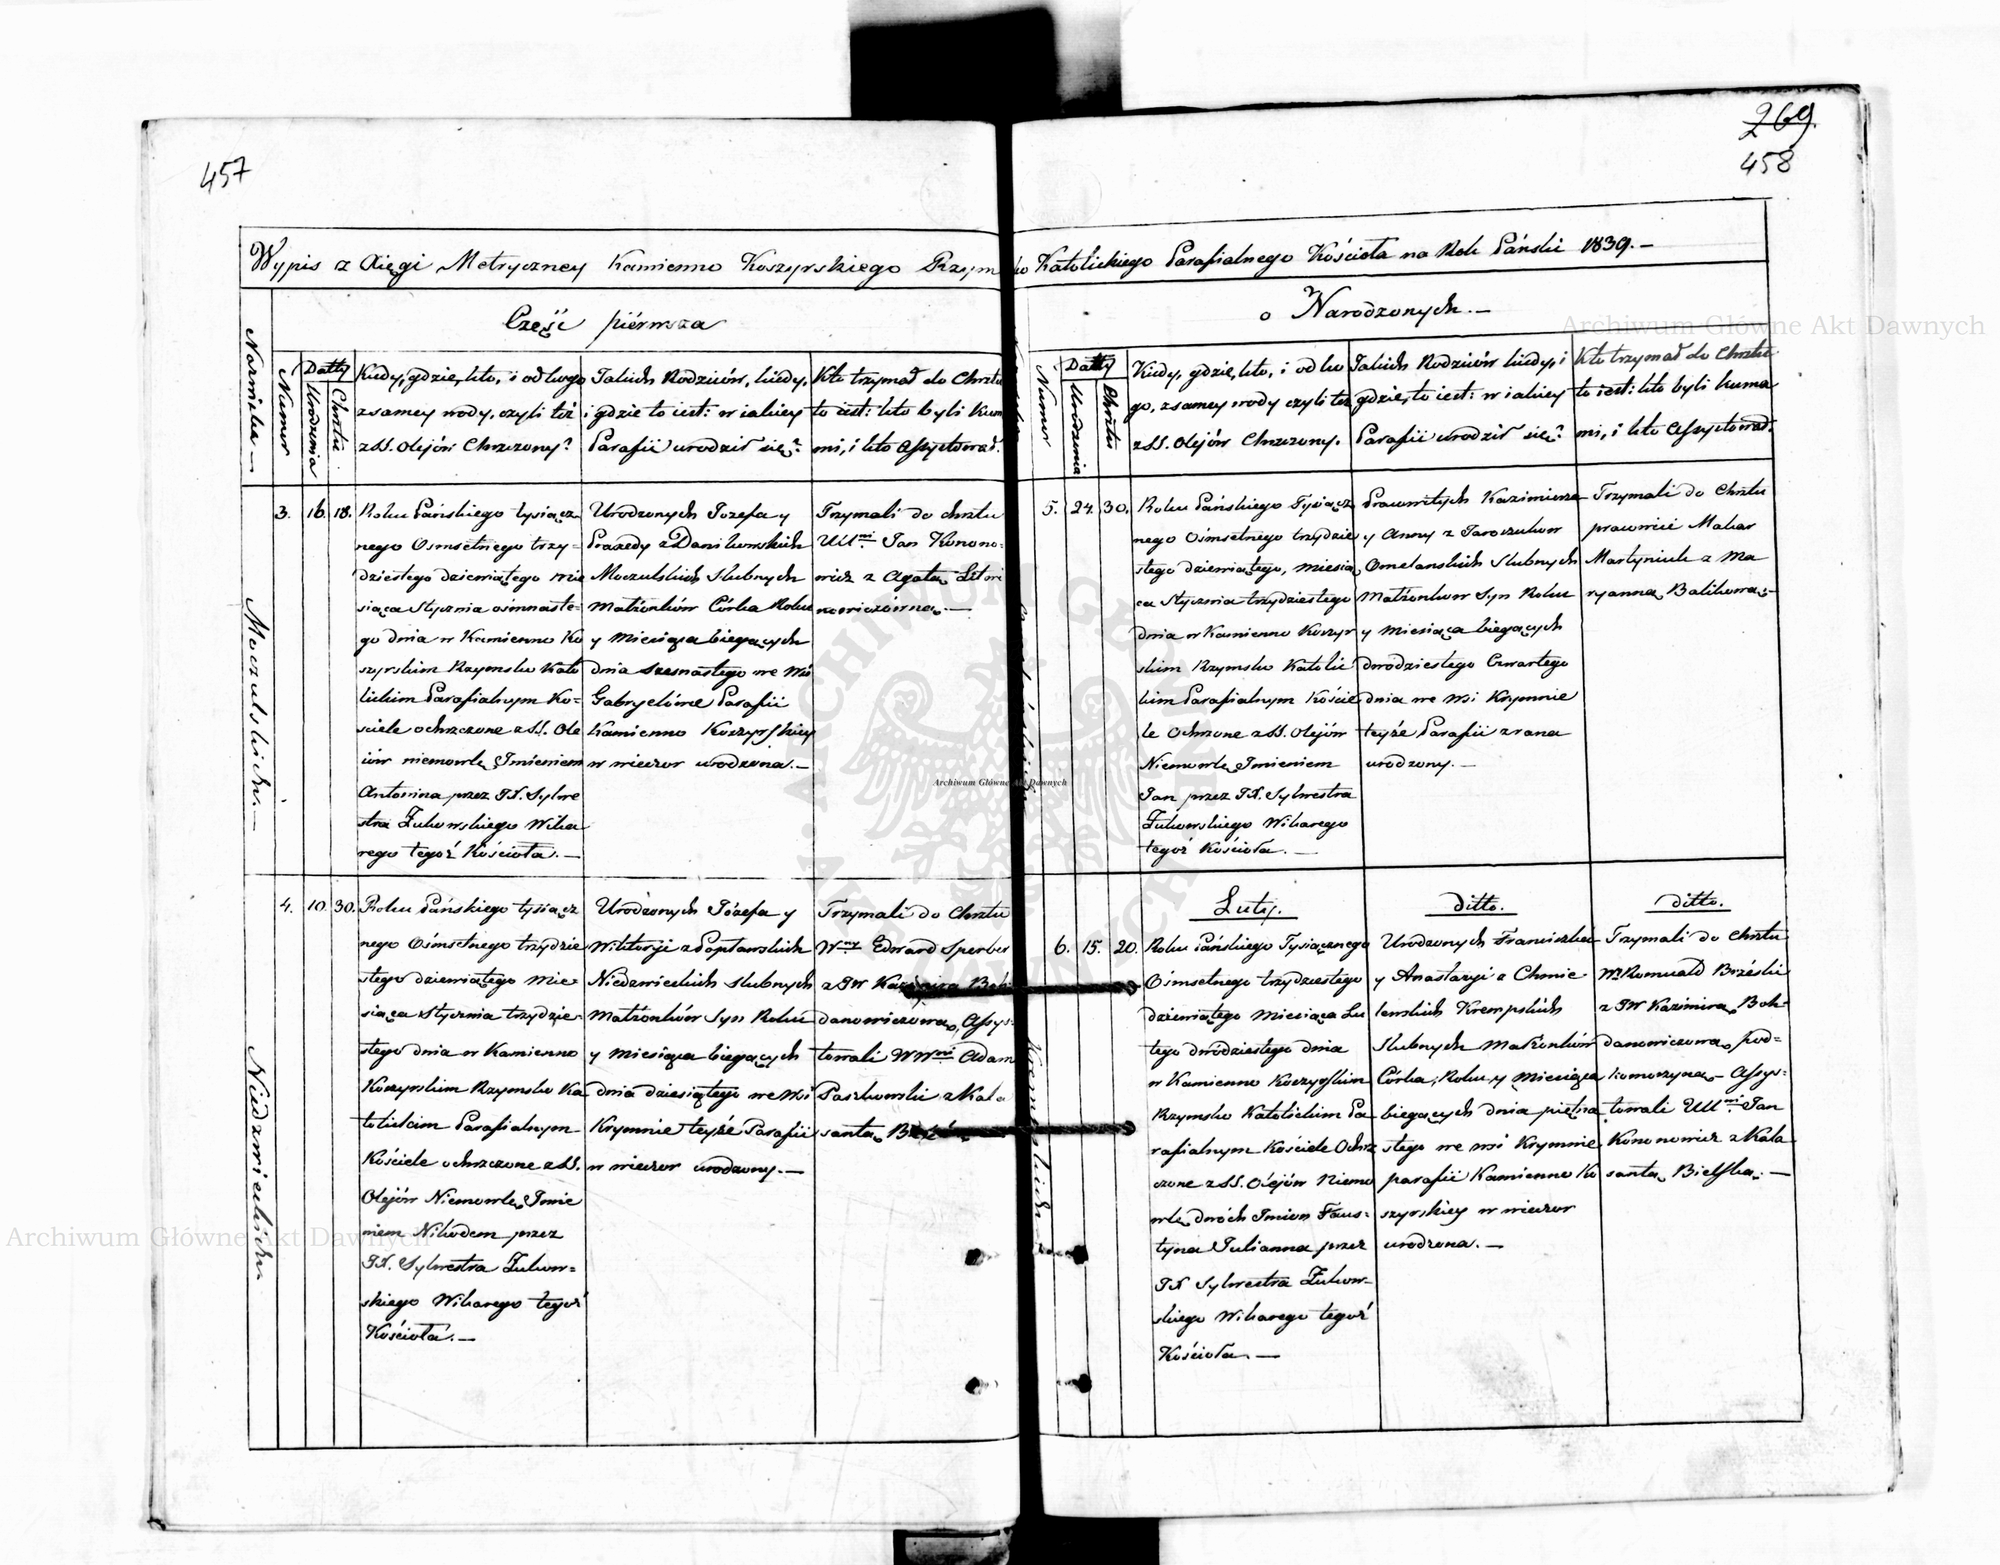 457
269.
458
Wypis z Xięgi Metryczney Kamienno Koszyrskiego Rzym
ko Katolickiego Parafialnego Kościoła na Rok Pański 1839. —
Część piérwsza
o Narodzonych. —
Nazwiska —
Numer
Datty
Urodzenia
Chrztu
Kiedy, gdzie, kto, i od kogo
z samey wody, czyli też
z SS. Olejów Chrzczony?
Jakich Rodziców, kiedy,
i gdzie to iest: w iakiey
Parafii urodził się?
Kto trzymał do Chrztu
to iest: kto byli Kum
mi, i kto Assystował.
Moczulskich. —
3. 16. 18.
Roku Pańskiego tysiącz
nego Osmsetnego trzy-
dziestego dziewiątego mie
siąca Stycznia osmnaste-
go dnia w Kamienno Ko
szyrskim Rzymsko Kato
lickim Parafialnym Ko-
sciele ochrzczone z SS. Ole
iów niemowlę Imieniem
Antonina przez JX. Sylwe
stra Żukowskiego Wika
rego tegoż Kościoła. —
Urodzonych Jozefa y
Praxedy z Danilewskich
Moczulskich Slubnych
Małżonków Córka Roku
y Miesiąca bieżących
dnia szesnastego we Wsi
Gabryelówie Parafii
Kamienno Koszyrskiey
w wieczor urodzona. —
Trzymali do chrztu
Ulł. Jan Konono-
wicz z Agatą
nowiczówną. —
Niedzwieckich
4. 10. 30.
Roku Pańskiego tysiącz
nego Ośmsetnego trzydzie
stego dziewiątego Mie-
siąca Stycznia trzydzie-
stego dnia w Kamienno
Koszyrskim Rzymsko Ka
tolickim Parafialnym
Kościele ochrzczone z SS.
Olejów Niemowlę Imie
niem Nikodem przez
JX. Sylwestra Żukow-
skiego Wikarego tegoż
Kościoła. —
Urodzonych Józefa y
Wiktoryi z Popławskich
Niedzwieckich Slubnych
Małżonków Syn Roku
y Miesiąca bieżących
dnia dziesiątego we Wsi
Krymnie teyże Parafii
w wieczor urodzony. —
Trzymali do Chrztu
Wny Edward Sperber
z JW Kazimirą Boh
danowiczową, Assys-
towali WWni Adam
Paszkowski z Kala
santą
Numer
Datty
Urodzenia
Chrztu
Kiedy, gdzie, kto, i od ko
go, z samey wody czyli też
z SS. Olejów Chrzczony.
Jakich Rodziców kiedy, i
gdzie, to iest: w iakiey
Parafii urodził się?
Kto trzymał do Chrztu
to iest: kto byli kuma
mi, i kto Assystował.
5. 24. 30.
Roku Pańskiego Tysiącz
nego Ośmsetnego trzydzie
stego dziewiątego, miesią
ca Stycznia trzydziestego
dnia w Kamienno Koszyr
skim Rzymsko Katolic
kim Parafialnym Koście
le Ochrzone z SS. Olejów
Niemowlę Imieniem
Jan przez JX. Sylwestra
Żukowskiego Wikarego
tegoż Kościoła. —
Prawowitych Kazimierza
y Anny z Jaroszukow
Omelanskich Slubnych
Małżonkow Syn Roku
y Miesiąca bieżących
dwódziestego Czwartego
dnia we Wsi Krymnie
teyże Parafii z rana
urodzony. —
Trzymali do Chrztu
prawowici Makar
Martyniuk z Ma
ryanną Balikową. —
Luty.
ditto.
ditto.
6. 15. 20.
Roku Pańskiego Tysiącznego
Ośmsetnego trzydziestego
dziewiątego Miesiąca Lu
tego dwódziestego dnia
w Kamienno Koszyrskim
Rzymsko Katolickim Pa
rafialnym Kościele Ochrz
czone z SS. Olejów Niemo
wlę dwóch Imion Faus-
tyna Julianna przez
JX Sylwestra Żukow-
skiego Wikarego tegoż
Kościoła. —
Urodzonych Franciszka
y Anastazyi z Chmie
lewskich Krempskich
Slubnych Małżonków
Córka, Roku y Miesiąca
bieżących dnia piętna
stego we wsi Krymnie
parafii Kamienno Ko
szyrskiey w wieczor
urodzona. —
Trzymali do Chrztu
Wny Romuald Brzéski
z JW Kazimirą Boh-
danowiczową pod-
komorzyną — Assys-
towali Ulł. Jan
Kononowicz z Kala
santą Bielską. —
Archiwum Główne Akt Dawnych
Archiwum Główne Akt Dawnych
Archiwum Główne Akt Dawnych